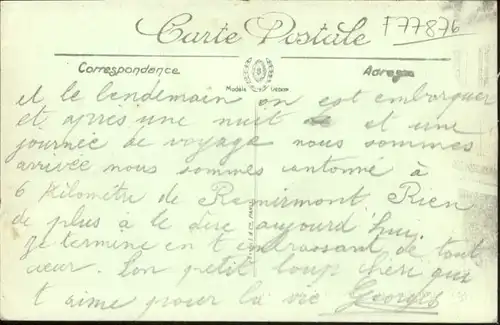 Carte Postale
F77876
Correspondance
Adresse
Modèle déposé
et le lendemain on est embarquer
et apres une nuit et une
journée de voyage nous sommes
arrivée nous sommes cantonné à
6 Kilomètre de Remiremont. Rien
de plus à te dire aujourd'hui.
Je termine en t embrassant de tout
cœur. Ton petit loup chéri qui
t aime pour la vie Georges